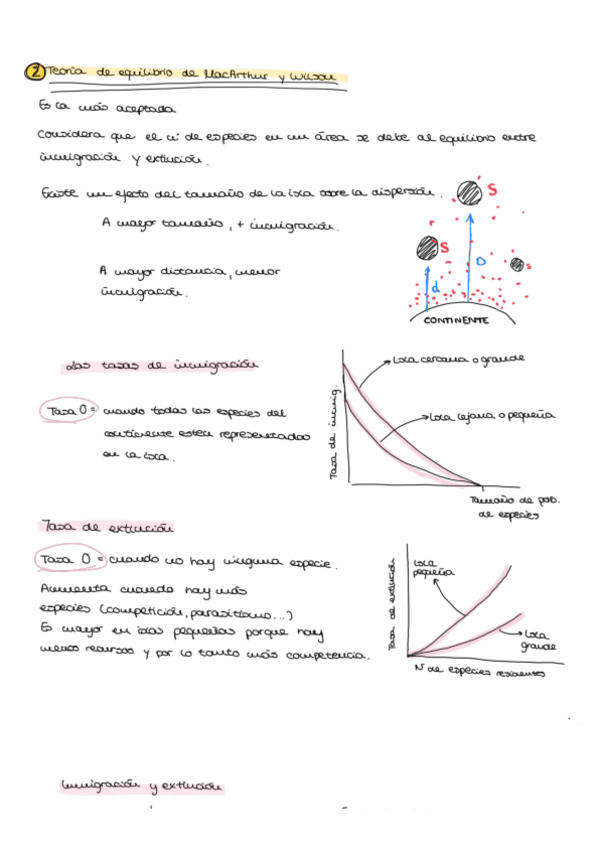 2 Teoría de equilibrio de MacArthur y Wilson
Es la más aceptada
Considera que el nº de especies en un área se debe al equilibrio entre
inmigración y extinción.
Existe un efecto del tamaño de la isla sobre la dispersión.
A mayor tamaño, + inmigración.
A mayor distancia, menor
inmigración.
S
S
s
D
d
CONTINENTE
Las tasas de inmigración
Tasa 0 = cuando todas las especies del
continente estén representadas
en la isla.
Tasa de inmig.
Isla cercana o grande
Isla lejana o pequeña
Tamaño de pob.
de especies
Tasa de extinción
Tasa 0 = cuando no hay ninguna especie.
Aumenta cuando hay más
especies (competición, parasitismo...)
Es mayor en islas pequeñas porque hay
menos recursos y por lo tanto más competencia.
Tasa de extinción
Isla
pequeña
Isla
grande
Nº de especies residentes
Inmigración y extinción